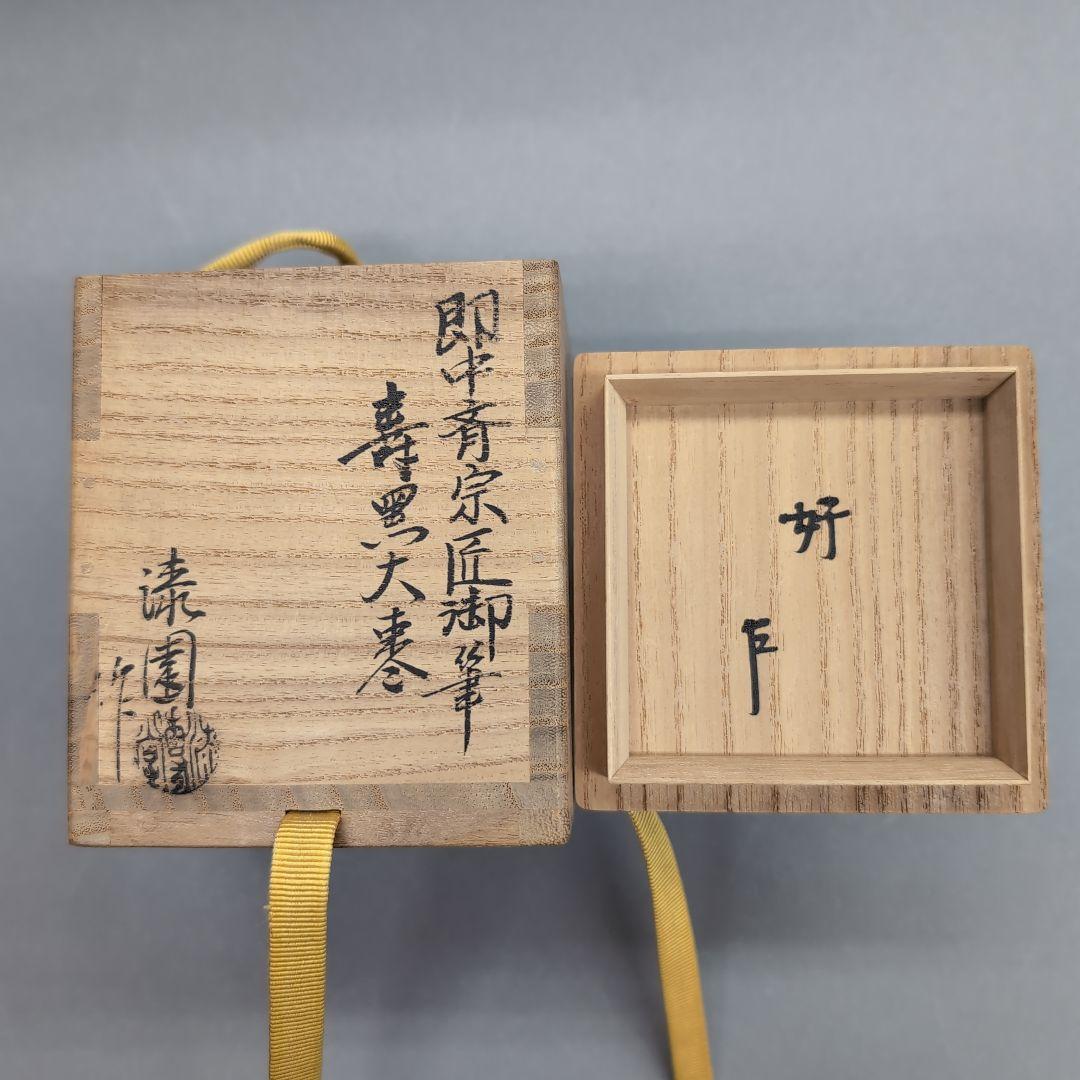 即中斎宗匠御筆
寿黒大棗
漆園
作
好